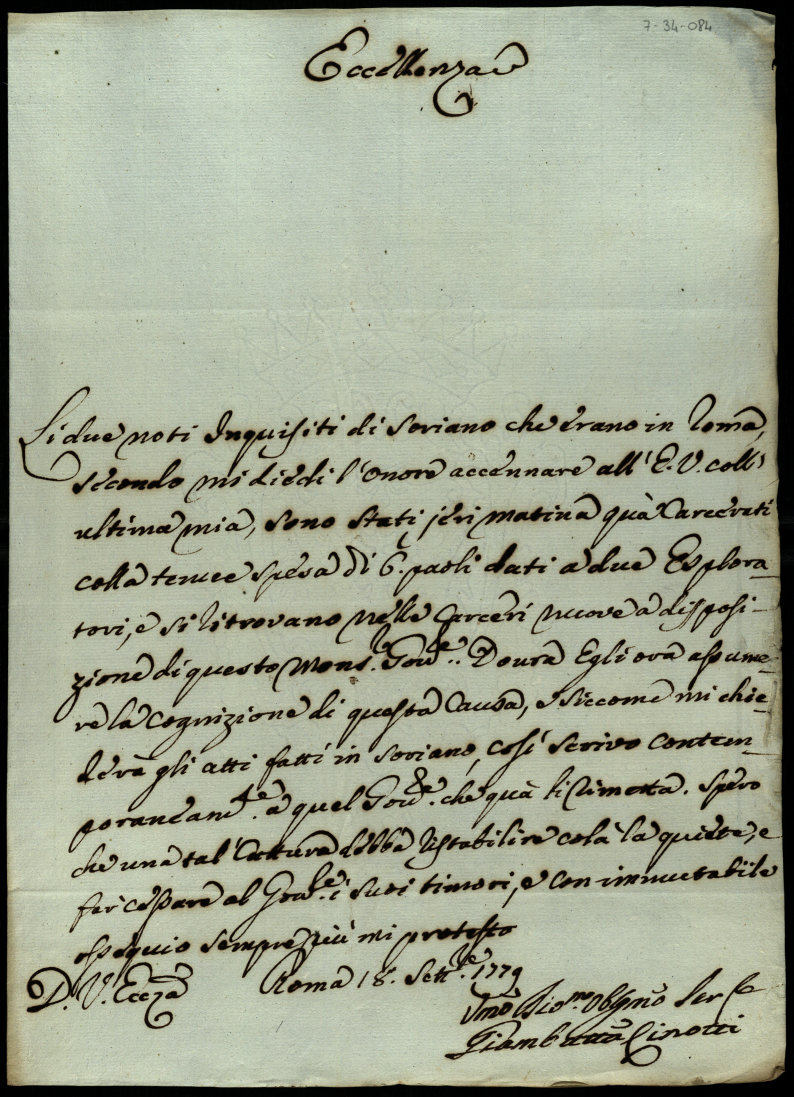 7-34-084
Eccellenza
Li due noti Inquisiti di Soriano che erano in Roma,
secondo mi diedi l'onore accennare all'E.V. coll'
ultima mia, sono stati jeri matina quà Carcerati
colla tenue spesa di 6. paoli dati a due Esplora-
tori, e si ritrovano nelle Carceri nuove a disposi-
zione di questo Mons.r Gov.re. Dovrà Egli ora assume-
re la Cognizione di questa Causa, e siccome mi chie-
derà gli atti fatti in Soriano, così scrivo contem-
poraneam.te a quel Gov.re che quà li rimetta. Spero
che una tal Cattura debba ristabilire colà la quiete, e
far cessare al Gov.re i suoi timori, e con immutabile
ossequio sempre più mi protesto
D. V. Ecczã Roma 18. Sett.re 1779
Umo Dio.mo Obbgmo Ser.e
Giambattã Cinotti